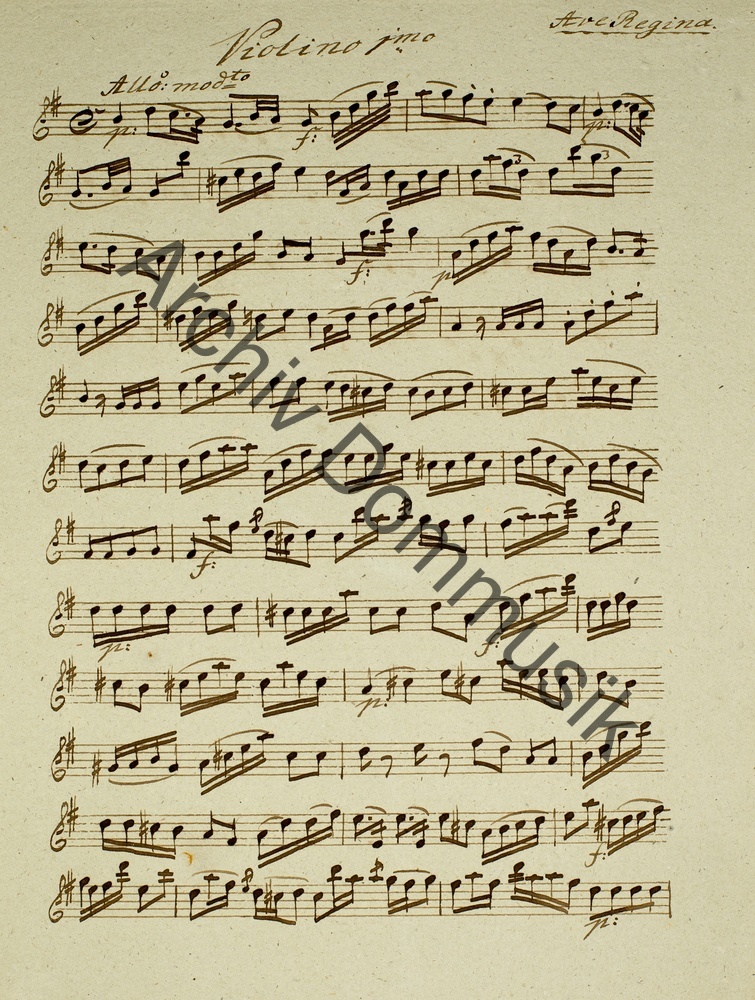 Ave Regina.
Violino 1mo
Allo: modto
p: f: p:
3 3
f: p:
f:
p: f:
p:
f:
p:
Archiv Dommusik